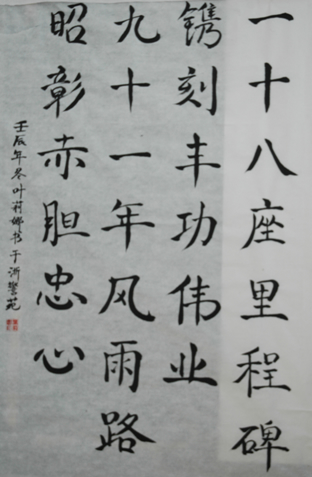 一十八座里程碑
镌刻丰功伟业
九十一年风雨路
昭彰赤胆忠心
壬辰年冬叶莉娜书于沂蒙苑